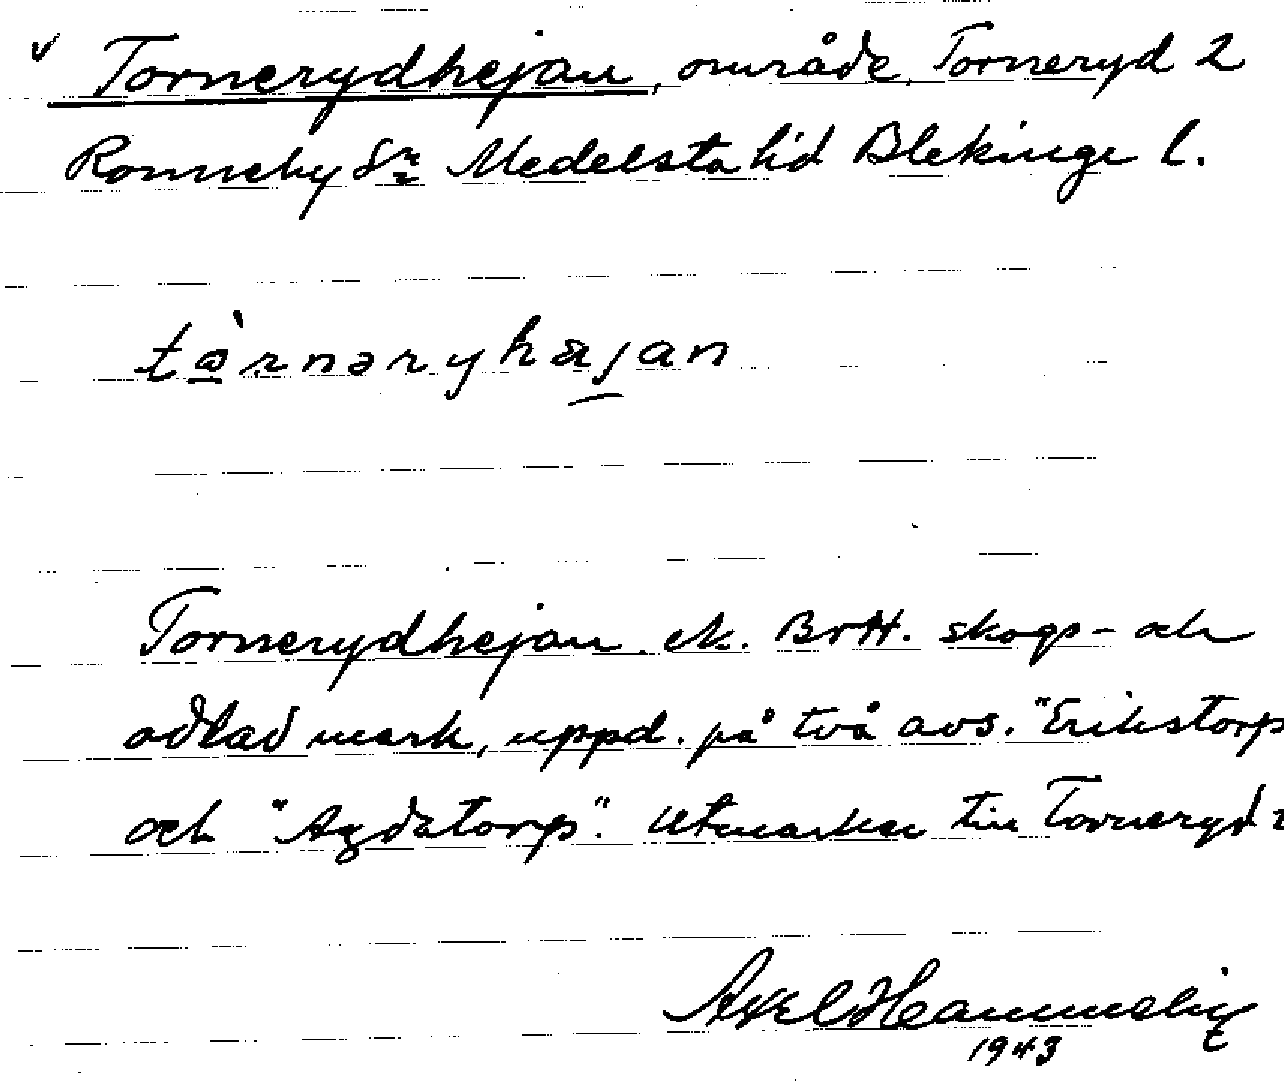 v Tornerydhejan, område, Torneryd 2
Ronneby Sn Medelsta hd Blekinge l.
tòrnəryhæjan
Tornerydhejan ek. BrH. skogs- och
odlad mark, uppd. på två avs. "Erikstorp
och "Agdatorp". Utmarken till Torneryd 2
Axel
1943